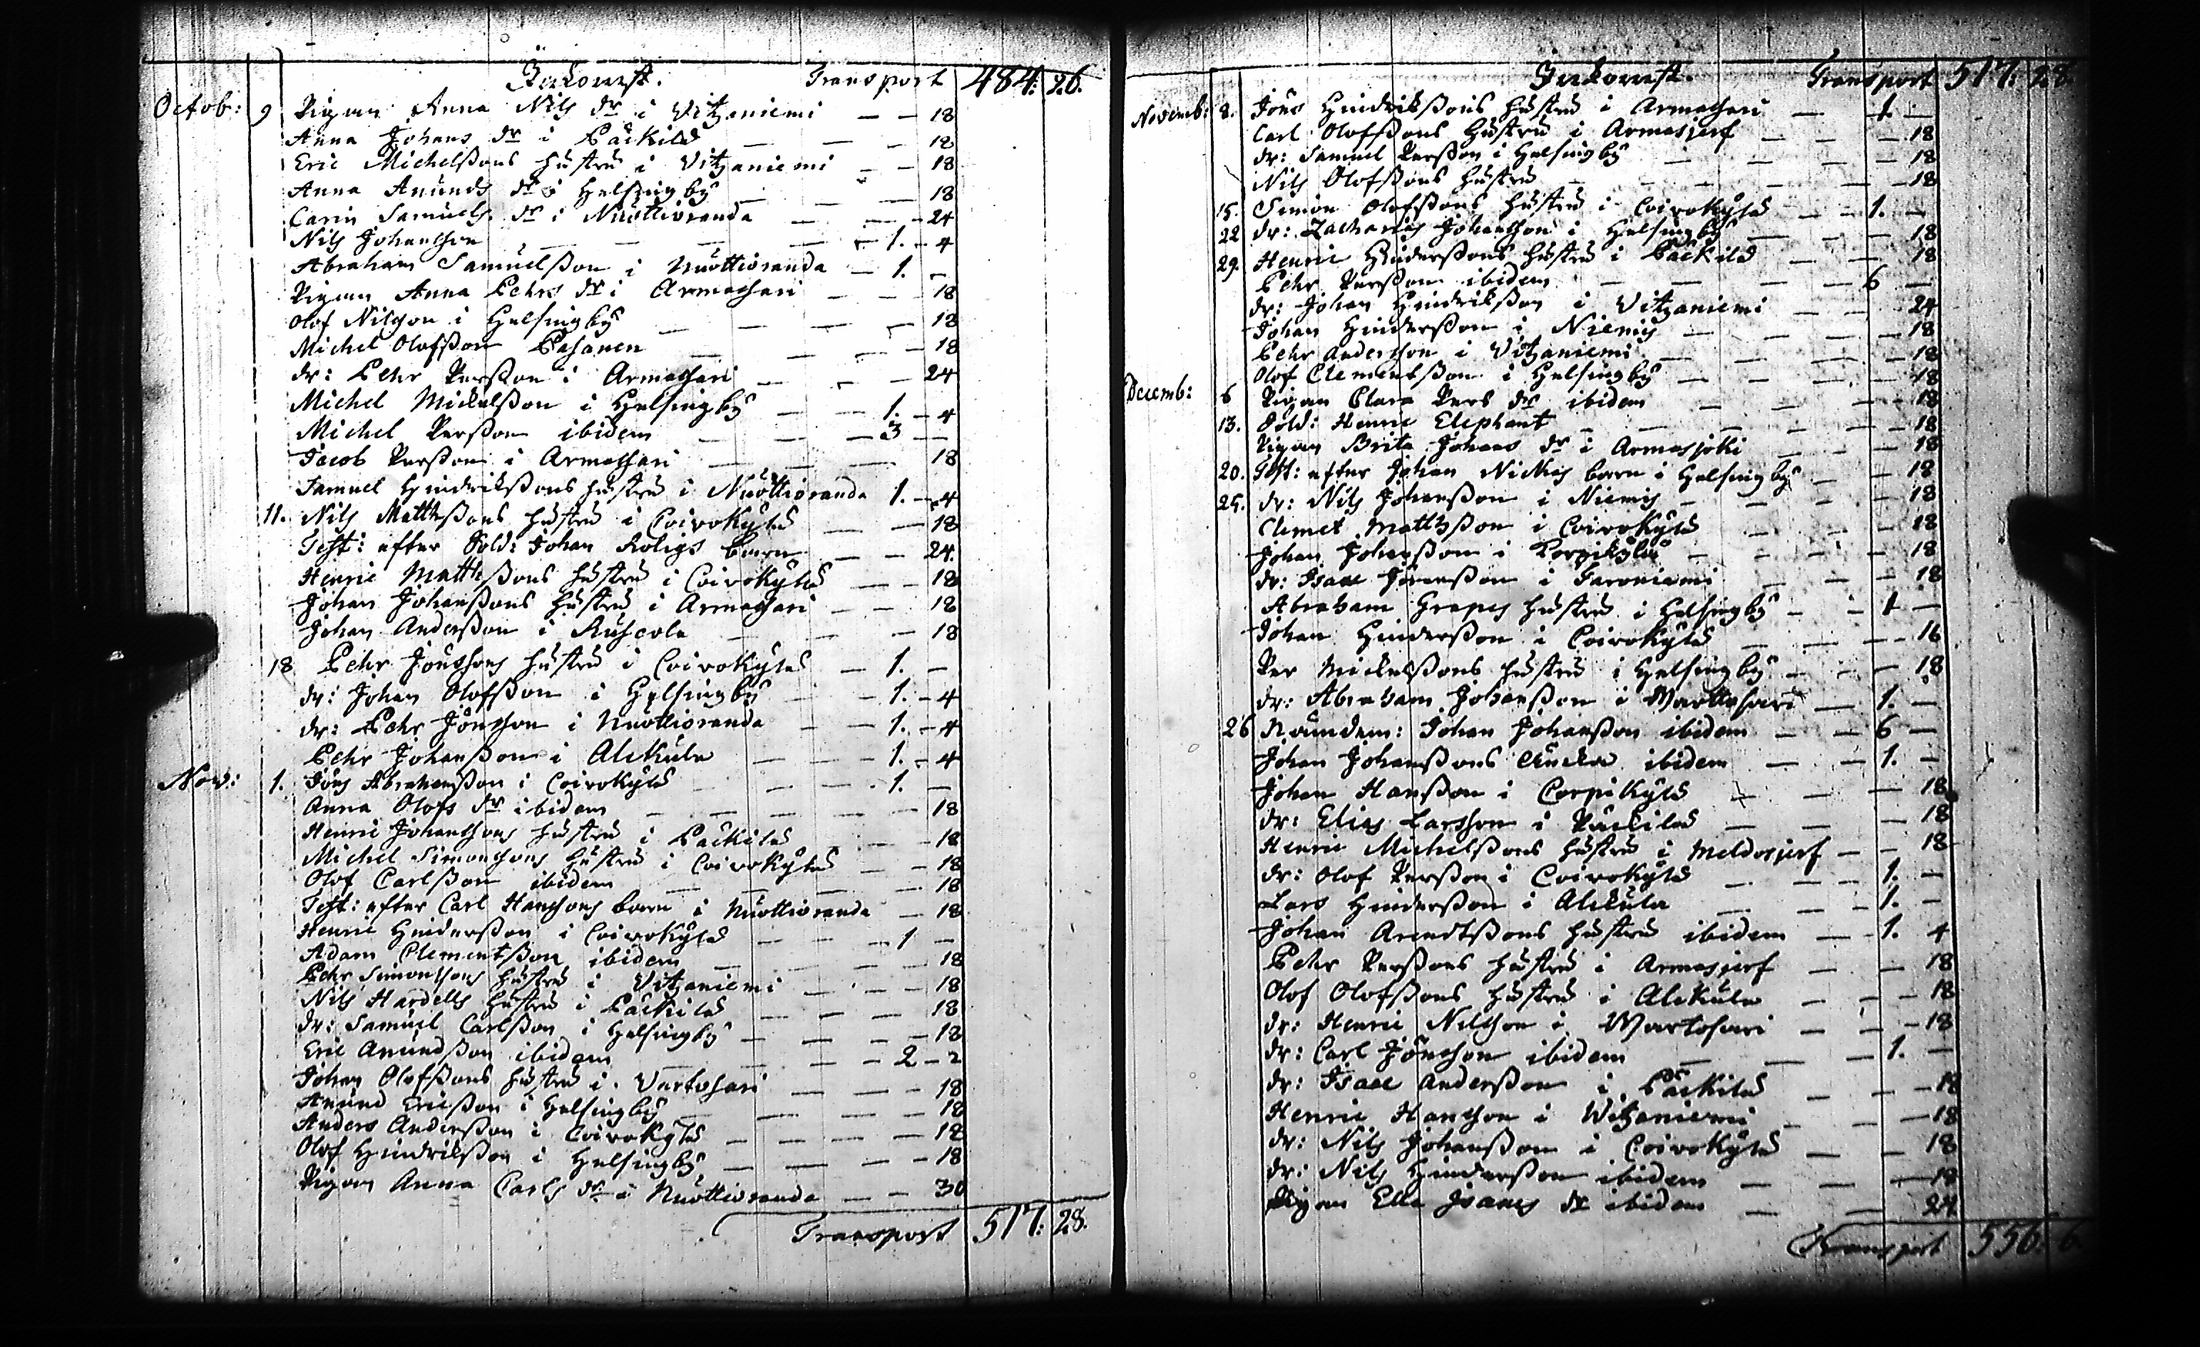 Inkomst. Transport 484: 26.
Octob: 9 Pigan Anna Nils dr i Vitzaniemi — — 18
Anna Johans dr i Päckilä — — — 18
Eric Michelßons hustru i Vitzaniemi — — 18
Anna Anunds dr i Helsingby — — — 18
Carin Samuels dr i Nuottioranda — — — 24
Nils Johansson — — — 1. — 4
Abraham Samuelßon i Nuottioranda — 1. —
Pigan Anna Pehrs dr i Armassari — — — 18
Olof Nilsson i Helsingby — — — 18
Michel Olofßon Pasanen — — — 18
dr: Pehr Perßon i Armassari — — — 24
Michel Mickelßon i Helsingby — — 1. — 4
Michel Perßon ibidem — — — 3 — —
Jacob Perßon i Armassari — — — 18
Samuel Hindrikßons hustru i Nuottioranda 1. — 4
11. Nils Matthßons hustru i Coivokylä — — 18
Test: efter Sold: Johan Roligs barn — — 24
Henric Matthßons hustru i Coivokylä — — 18
Johan Johanßons hustru i Armassari — — 18
Johan Anderßon i Ruscola — — 18
18 Pehr Jönssons hustru i Coivokylä — 1. —
dr: Johan Olofßon i Helsingby — — 1. — 4
dr: Pehr Jönsson i Nuottioranda — — 1. — 4
Pehr Johanßon i Alckula — — 1. — 4
Nov: 1. Jöns Abrahamßon i Coivokylä — — — 1. —
Anna Olofs dr ibidem — — — — 18
Henric Johanssons hustru i Päckilä — — 18
Michel Simonssons hustru i Coivokylä — — 18
Olof Carlßon ibidem — — — 18
Test: efter Carl Hanssons barn i Nuottioranda — 18
Henric Hinderßon i Coivokylä — — — 1 —
Adam Clementßon ibidem — — — 18
Pehr Simonssons hustru i Vitzaniemi — — — 18
Nils Hardells hustru i Päckilä — — — 18
dr: Samuel Carlßon i Helsingby — — — 18
Eric Anundßon ibidem — — — 2 — 2
Johan Olofßons hustru i Vartosari — — 18
Anund Ericßon i Helsingby — — — 18
Anders Anderßon i Coivokylä — — — — 18
Olof Hindrikßon i Helsingby — — — — 18
Pigan Anna Carls dr i Nuottioranda — — 30
Transport 517: 28.
Inkomst. Transport 517: 28
Novemb: 8. Jöns Hindrikßons hustru i Armassari — 1 —
Carl Olofßons hustru i Armasjerf — — 18
dr: Samuel Perßon i Helsingby — — — 18
Nils Olofßons hustru — — — — 18
15. Simon Olofßons hustru i Coivokylä — — 1. —
22 dr: Zacharias Johansson i Helsingby — — 18
29. Henric Hinderßons hustru i Päckilä — — 18
Pehr Perßon ibidem — — — 6 —
dr: Johan Hindrikßon i Vitzaniemi — — 24
Johan Hinderßon i Niemis — — — 18
Pehr Andersson i Vitzaniemi — — — 18
Olof Clementßon i Helsingby — — — 18
Decemb: 6 Pigan Clara Pers dr ibidem — — — 18
13. Sold: Henric Elephant — — — — 18
Pigan Brita Johans dr i Armasjoki — — — 18
20. Test: efter Johan Nickis barn i Helsingby — — 18
25. dr: Nils Johanßon i Niemis — — — 18
Clemet Matthßon i Coivokylä — — — 18
Johan Johanßon i Korpikylä — — — 18
dr: Isaac Jöranßon i Taroniemi — — — 18
Abraham Grapes hustru i Helsingby — — 1 —
Johan Hinderßon i Coivokylä — — — 16
Per Mickelßons hustru i Helsingby — — — 18
dr: Abraham Johanßon i Wartosari — 1. —
26 Nämdem: Johan Johanßon ibidem — — 6 —
Johan Johanßons ibidem — — 1. —
Johan Hanßon i Corpikylä — — — 18
dr: Elias Larsson i Päckilä — — — 18
Henric Michelßons hustru i Meldosjerf — — 18
dr: Olof Perßon i Coivokylä — — 1. —
Lars Hinderßon i Alckula — — 1. —
Johan Arendtßons hustru ibidem — 1. 4
Pehr Perßons hustru i Armasjerf — — — 18
Olof Olofßons hustru i Alckula — — — 18
dr: Henric Nilsson i Wartosari — — — 18
dr: Carl Jönsson ibidem — — — 1. —
dr: Isaac Anderßon i Päckilä — — — 18
Henric Hansson i Witzaniemi — — — 18
dr: Nils Johanßon i Coivokylä — — — 18
dr: Nils Hinderßon ibidem — — — 18
Pigan Ella Isaacs dr ibidem — — 24
Transport 556. 6.